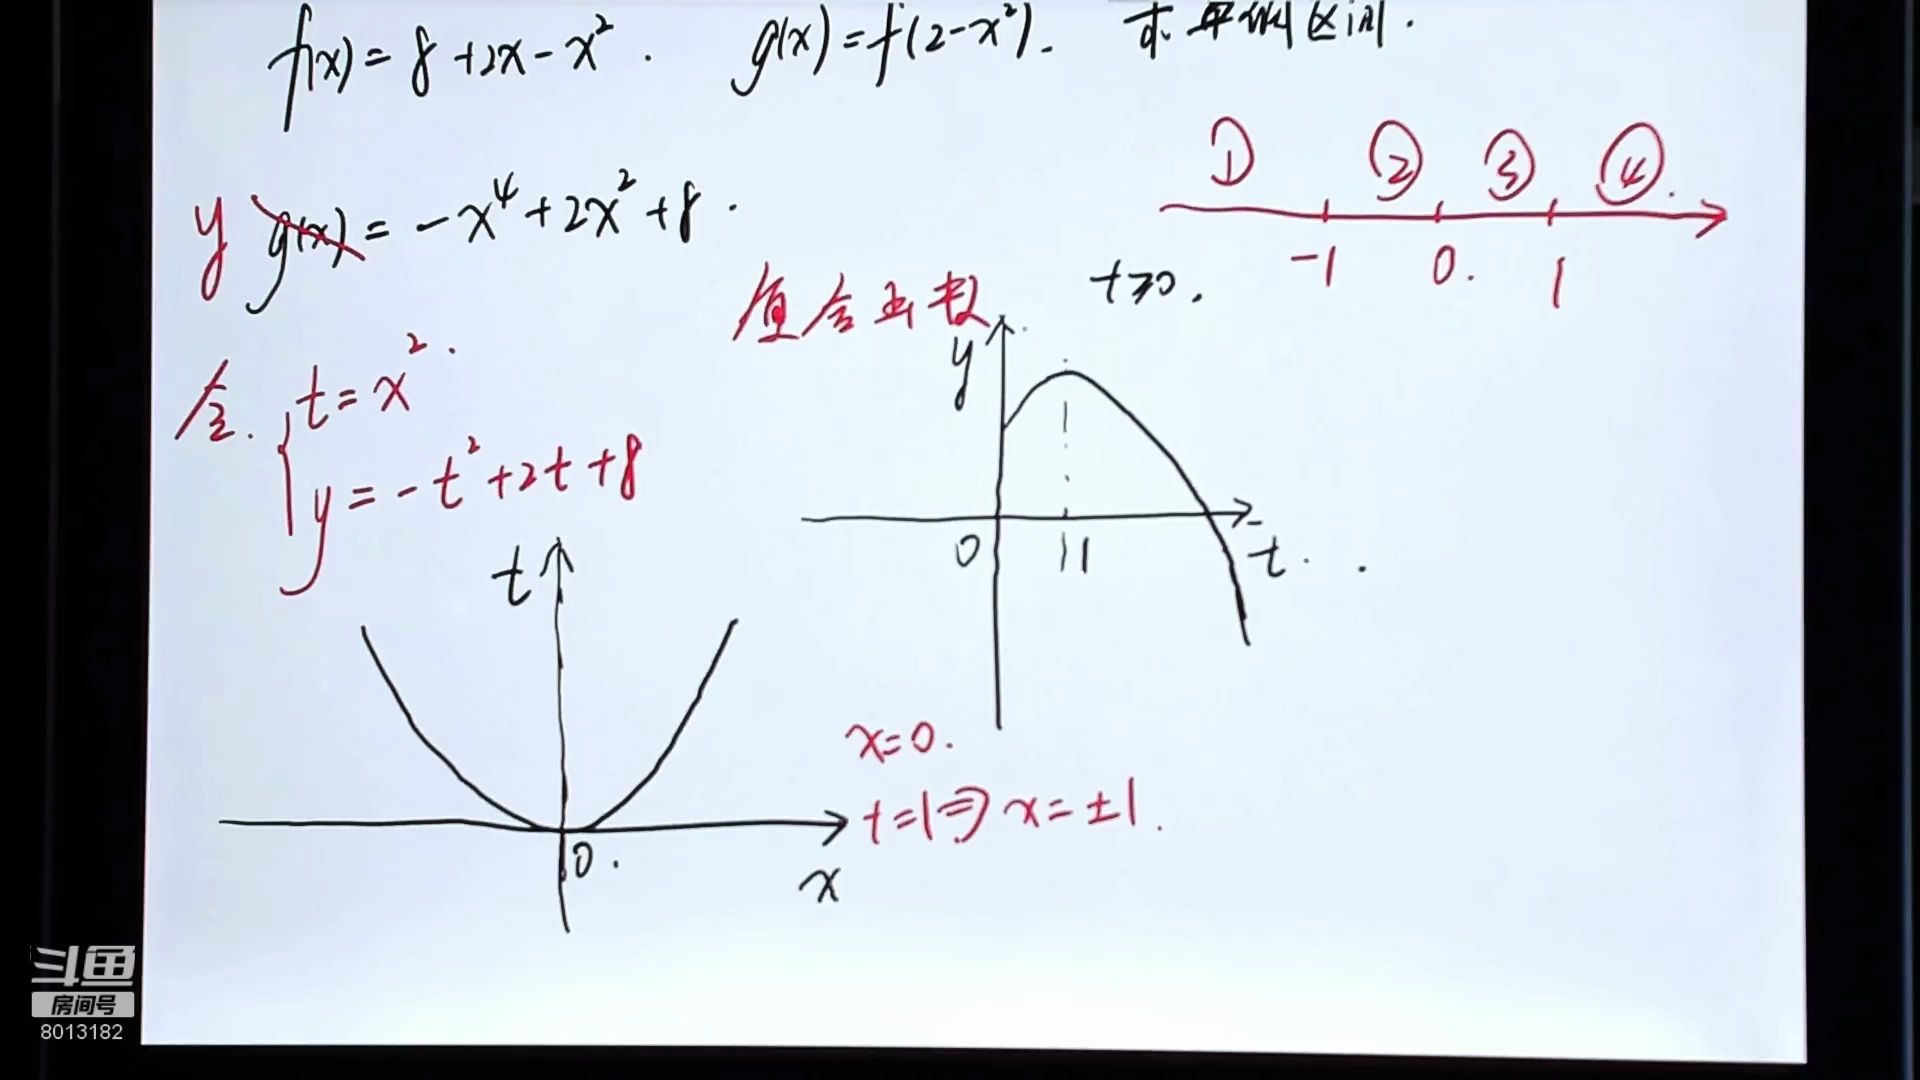 f(x) = 8 + 2x - x². g(x) = f(2-x²). 求单调区间.
① ② ③ ④.
-1 0. 1
y g(x) = -x⁴ + 2x² + 8.
复合函数 t≥0.
令. t = x².
y = -t² + 2t + 8
y
0 1 t.
t
0. x
x=0.
t=1⇒x=±1.
斗鱼
房间号
8013182